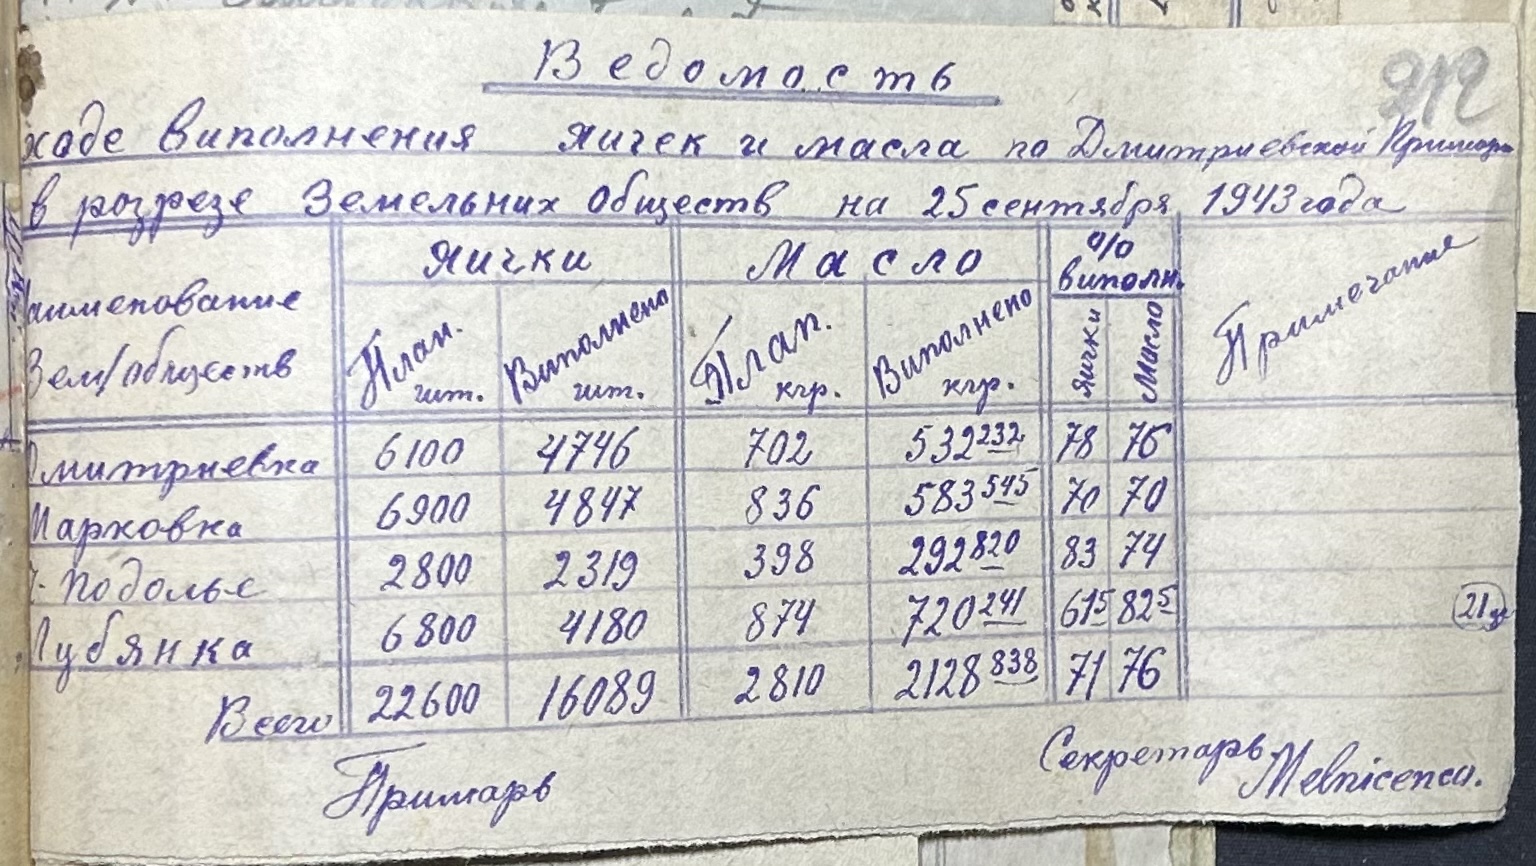 212
Ведомость
ходе виполнения яичек и масла по Дмитриевской Примар
в розрезе Земельних обществ на 25 сентября 1943 года
аименование Зем/обществ | Яички | Масло | % виполн. | Примечание
План. шт. | Виполнено шт. | План. кгр. | Виполнено кгр. | Яички | Масло
митриевка | 6100 | 4746 | 702 | 532 232 | 78 | 76
Марковка | 6900 | 4847 | 836 | 583 545 | 70 | 70
Подолье | 2800 | 2319 | 398 | 292 820 | 83 | 74
Лубянка | 6800 | 4180 | 874 | 720 241 | 61 5 | 82 5
Всего | 22600 | 16089 | 2810 | 2128 838 | 71 | 76
Примарь
Секретарь Melnicenco.